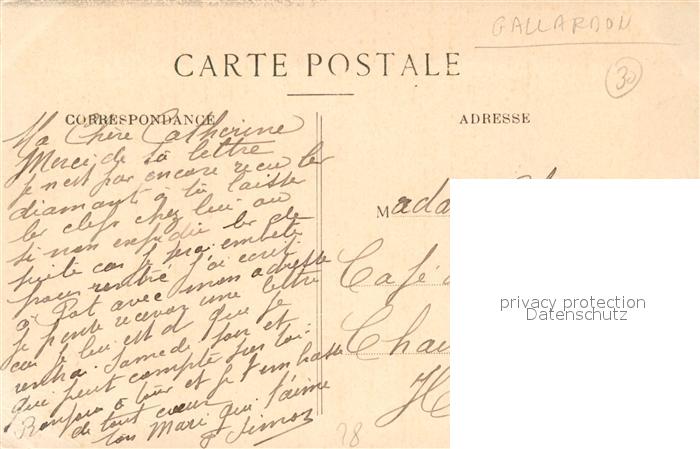 GALLARDON
30
CARTE POSTALE
CORRESPONDANCE
ADRESSE
Ma Chère Catherine
Merci de ta lettre
je n'est pas encore recu les
diamant à tu laisse
les clefs chez lui ou
si non expedie les de
suite car je serai embete
pour rentré j'ai ecrit
a Pat avec mon adresse
je pense recevoir une lettre
car je lui est di que je
rentrai Samedi soir et
qui peut compté sur toi.
Bonjour à tous et je t'embrasse
de tout cœur
ton Mari qui t'aime
Simon
Mada
Café
Chau
H
28
privacy protection
Datenschutz